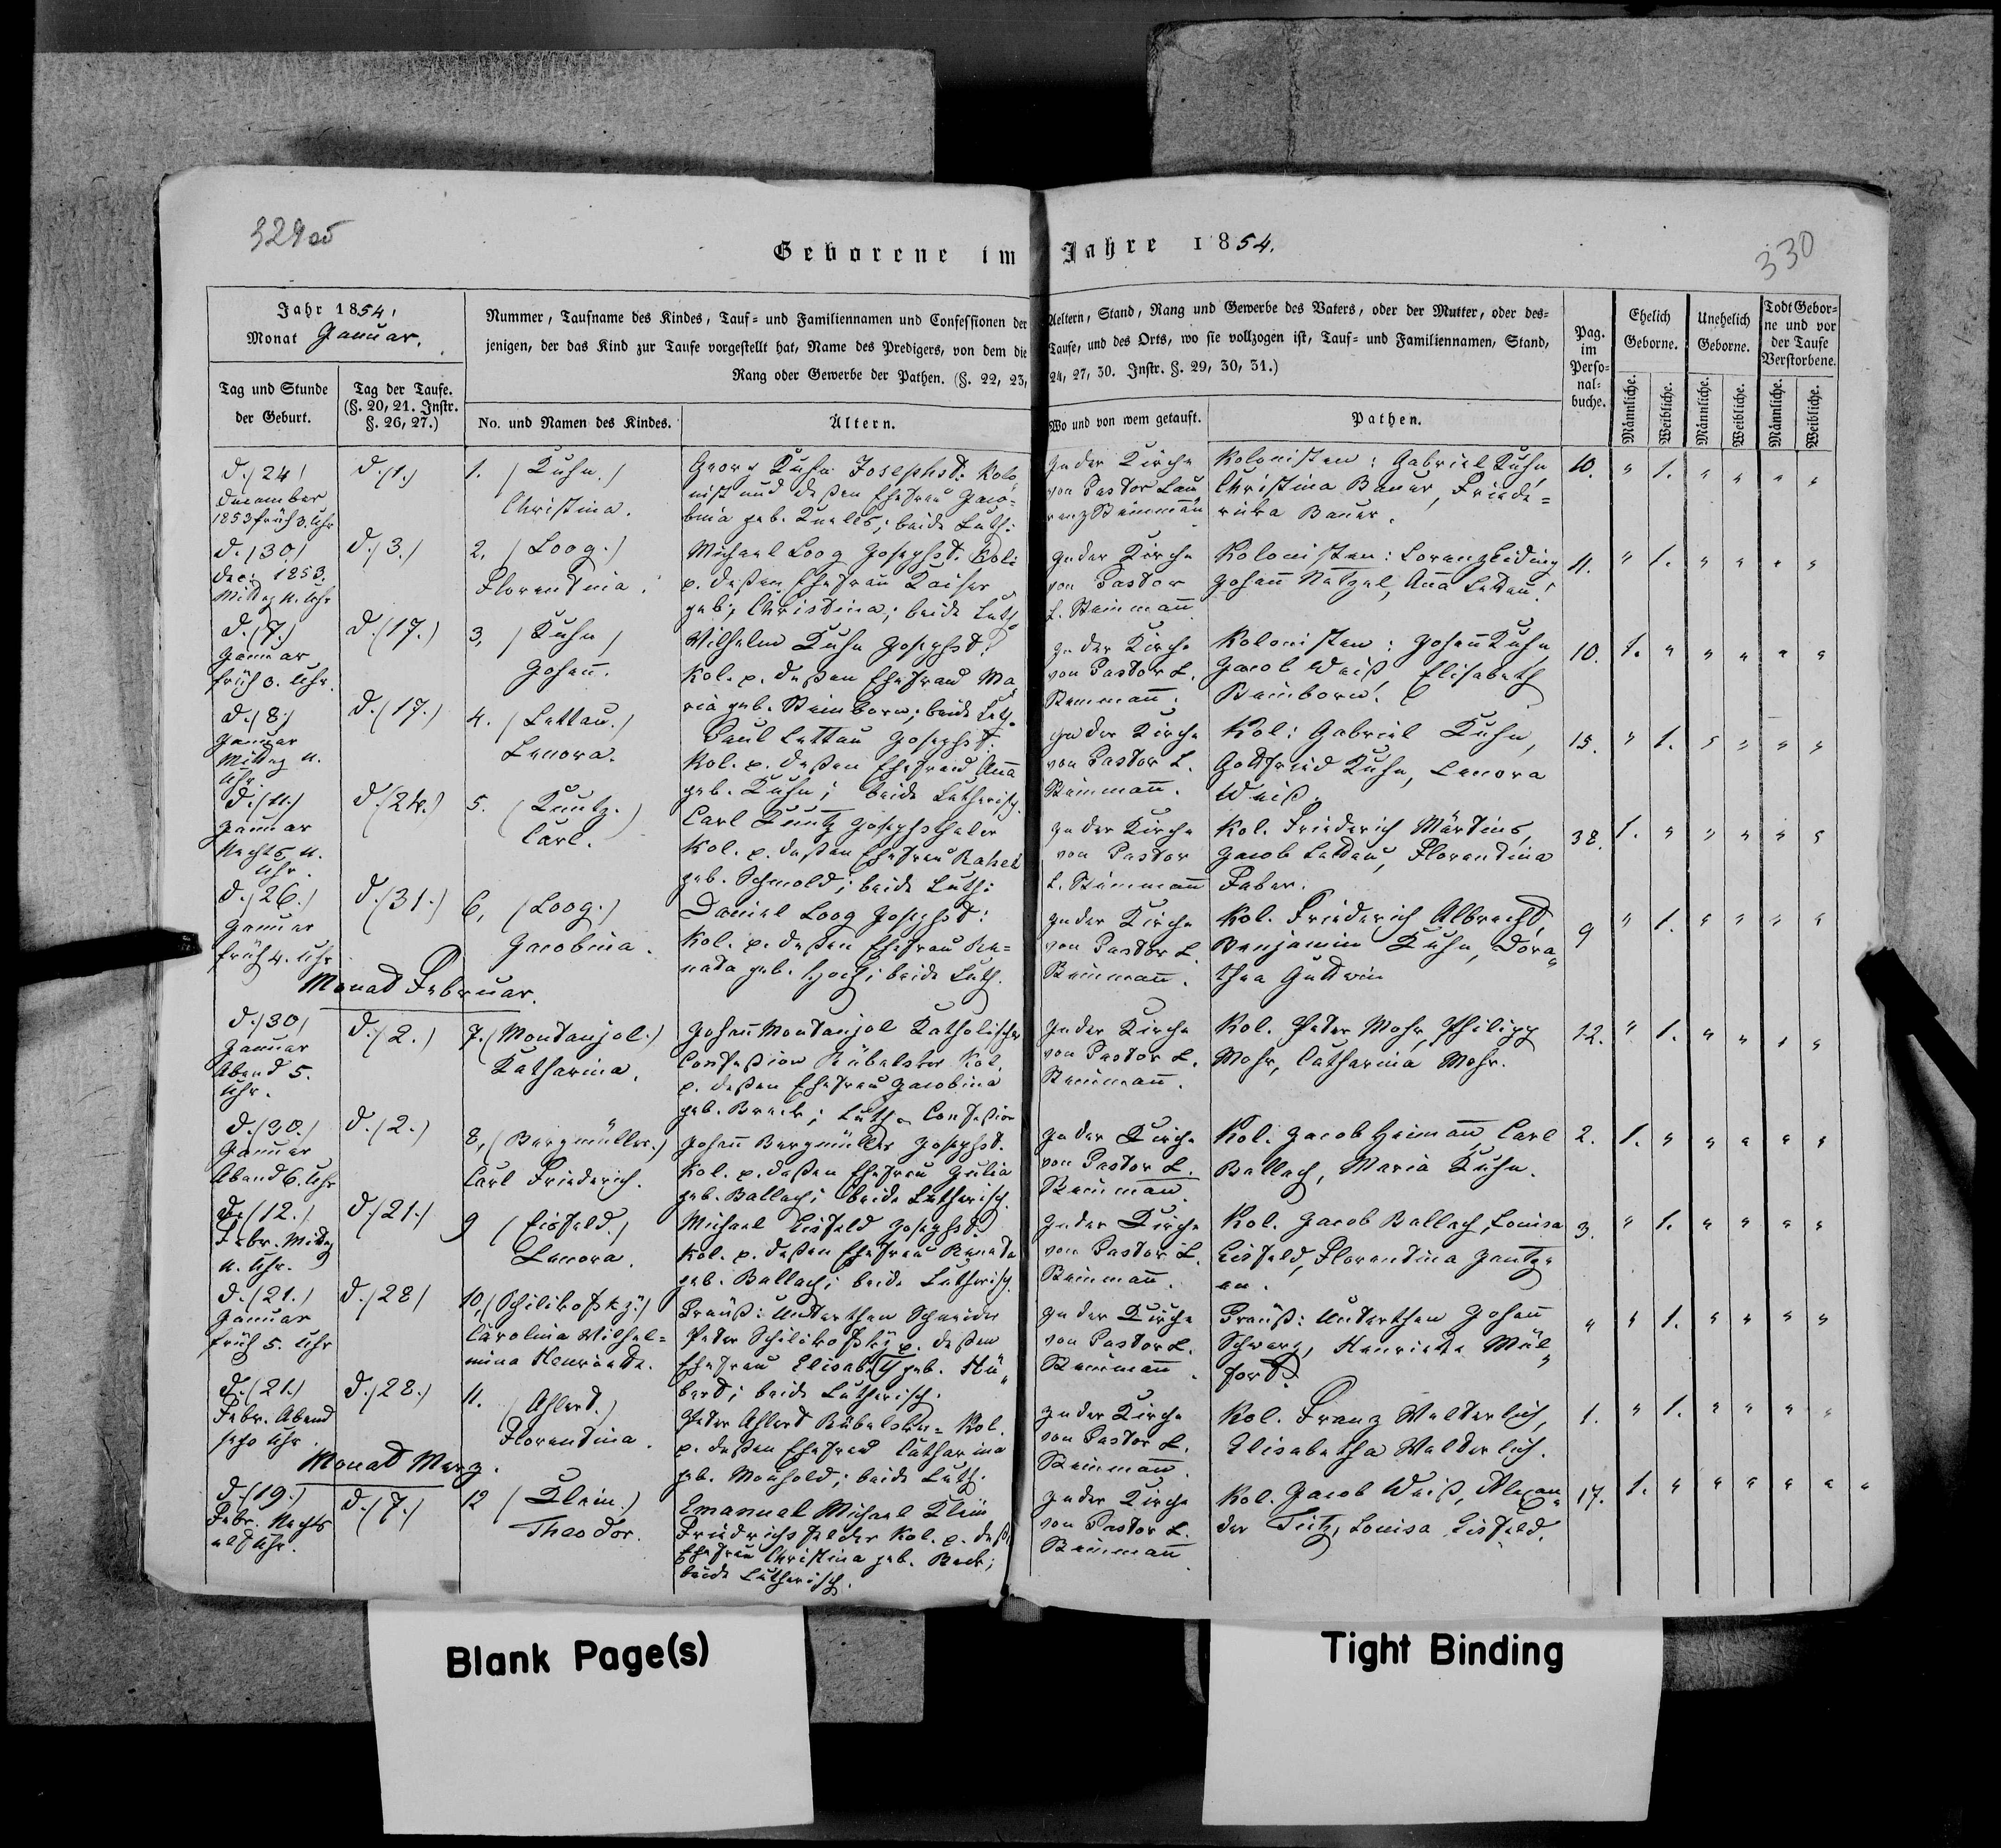 329 об
330
Geborene im Jahre 1854.
Jahr 1854.
Monat Januar.
Tag und Stunde
der Geburt.
Tag der Taufe.
(§. 20, 21. Instr.
§. 26, 27.)
Nummer, Taufname des Kindes, Tauf- und Familiennamen und Confessionen der Aeltern, Stand, Rang und Gewerbe des Vaters, oder der Mutter, oder des-
jenigen, der das Kind zur Taufe vorgestellt hat, Name des Predigers, von dem die Taufe, und des Orts, wo sie vollzogen ist, Tauf- und Familiennamen, Stand,
Rang oder Gewerbe der Pathen. (§. 22, 23, 24, 27, 30. Instr. §. 29, 30, 31.)
No. und Namen des Kindes.
Ältern.
Wo und von wem getauft.
Pathen.
Pag.
im
Perso-
nal-
buche.
Ehelich
Geborne.
Unehelich
Geborne.
Todt Gebor-
ne und vor
der Taufe
Verstorbene.
Männliche.
Weibliche.
Männliche.
Weibliche.
Männliche.
Weibliche.
d. 24
December
1853 früh 3. Uhr
d. (1.)
1. (Kuhn.)
Christina.
Georg Kuhn Josephst: Kolo-
nist und deßen Ehefrau Jaco-
bina geb. beide Luth:
In der Kirche
von Pastor Lau-
renz Steinmann
Kolonisten: Gabriel Kuhn,
Christina Bauer, Friede-
rika Bauer.
10. " 1. " " " "
d. (30)
Dec: 1853.
Mittag 11. Uhr
d. (3.)
2. (Loog.)
Florentina.
Michael Loog Josephst. Kol:
p. deßen Ehefrau Kaiser
geb; Christina; beide Luth.
In der Kirche
von Pastor
L. Steinmann
Kolonisten: Lorenz Eiding
Johann Natzel, Anna Lettau.
11. " 1. " " " "
d. (7.)
Januar
früh 3. Uhr.
d. (17.)
3, (Kuhn)
Johann.
Wilhelm Kuhn Josephst:
Kol. p. deßen Ehefrau Ma-
ria geb. Steinborn; beide Luth.
In der Kirche
von Pastor L.
Steinmann.
Kolonisten: Johann Kuhn,
Jacob Weiß, Elisabeth
10. 1. " " " " "
d. (8.)
Januar
Mittag 11.
Uhr.
d. (17.)
4. (Lettau.)
Lenora.
Paul Lettau Josephst:
Kol. p. deßen Ehefrau Anna
geb. Kuhn; beide Lutherisch.
In der Kirche
von Pastor L.
Steinmann.
Kol: Gabriel Kuhn,
Gottfried Kuhn, Lenora
Weiß.
15. " 1. " " " "
d. (11.)
Januar
Nachts 11.
Uhr.
d. (24.)
5. (Kuntz.)
Carl.
Carl Kuntz Josephsthaler
Kol. p. deßen Ehefrau Rahel
geb. Schmold; beide Luth:
In der Kirche
von Pastor
L. Steinmann
Kol. Friederich Märtins,
Jacob Lettau, Florentina
Faber.
38. 1. " " " " "
d. (26.)
Januar
früh 4. Uhr
d. (31.)
6, (Loog.)
Jacobina.
Daniel Loog Josephst:
Kol. p. deßen Ehefrau Re-
nata geb. Hoch; beide Luth.
In der Kirche
von Pastor L.
Steinmann.
Kol. Friederich Albrecht,
Benjamin Kuhn, Doro-
thea Gutwin
9 " 1. " " " "
Monat Februar.
d. (30)
Januar
Abend 5.
Uhr.
d. (2.)
7. (Montanjol.)
Katharina.
Johann Montanjol Katholischer
Confeßion Kol.
p. deßen Ehefrau Jacobina
geb. Beck; Luth. Confeßion
In der Kirche
von Pastor L.
Steinmann.
Kol. Peter Mohr, Philipp
Mohr, Catharina Mohr.
12. " 1. " " " "
d. (30.)
Januar
Abend 6. Uhr
d. (2.)
8, (Bergmüller.)
Carl Friederich.
Johann Bergmüller Josephst.
Kol. p. deßen Ehefrau Julia
geb. Ballach; beide Lutherisch.
In der Kirche
von Pastor L.
Steinmann.
Kol. Jacob Heimann, Carl
Ballach, Maria Kuhn.
2. 1. " " " " "
d. (12.)
Febr. Mittag
11. Uhr.
d. (21.)
9 (Eisfeld.)
Lenora.
Michael Eisfeld Josephst.
Kol. p. deßen Ehefrau Renata
geb. Ballach; beide Lutherisch.
In der Kirche
von Pastor L.
Steinmann.
Kol. Jacob Ballach, Louisa
Eisfeld, Florentina Jantz-
en.
3. " 1. " " " "
d. (21.)
Januar
früh 5. Uhr
d. (28)
10, (Schilikofsky.)
Carolina Wilhel-
mina Henriette.
Preuß: Unterthan Schneider
Peter Schilikofsky p. deßen
Ehefrau Elisabeth geb. Hü-
bert; beide Lutherisch.
In der Kirche
von Pastor L.
Steinmann.
Preuß: Unterthan Johann
Schwarz, Henriette Mül-
fort.
" " 1. " " " "
d. (21.)
Febr. Abend
sechs Uhr.
d. (28.)
11. (Ahlert.)
Florentina.
Peter Ahlert Kol.
p. deßen Ehefrau Catharina
geb. Monhold; beide Luth.
In der Kirche
von Pastor L.
Steinmann.
Kol. Franz Welterlich,
Elisabetha Welterlich.
1. " 1. " " " "
Monat Merz.
d. (19.)
Febr. Nachts
elf Uhr.
d. (7.)
12 (Klein.)
Theodor.
Emanuel Michael Klein
Friedrichsfelder Kol. p. deß.
Ehefrau Christina geb. Beck;
beide Lutherisch.
In der Kirche
von Pastor L.
Steinmann
Kol. Jacob Weiß, Alexan-
der Tietz, Louisa Eisfeld.
17. 1. " " " " " "
Blank Page(s)
Tight Binding